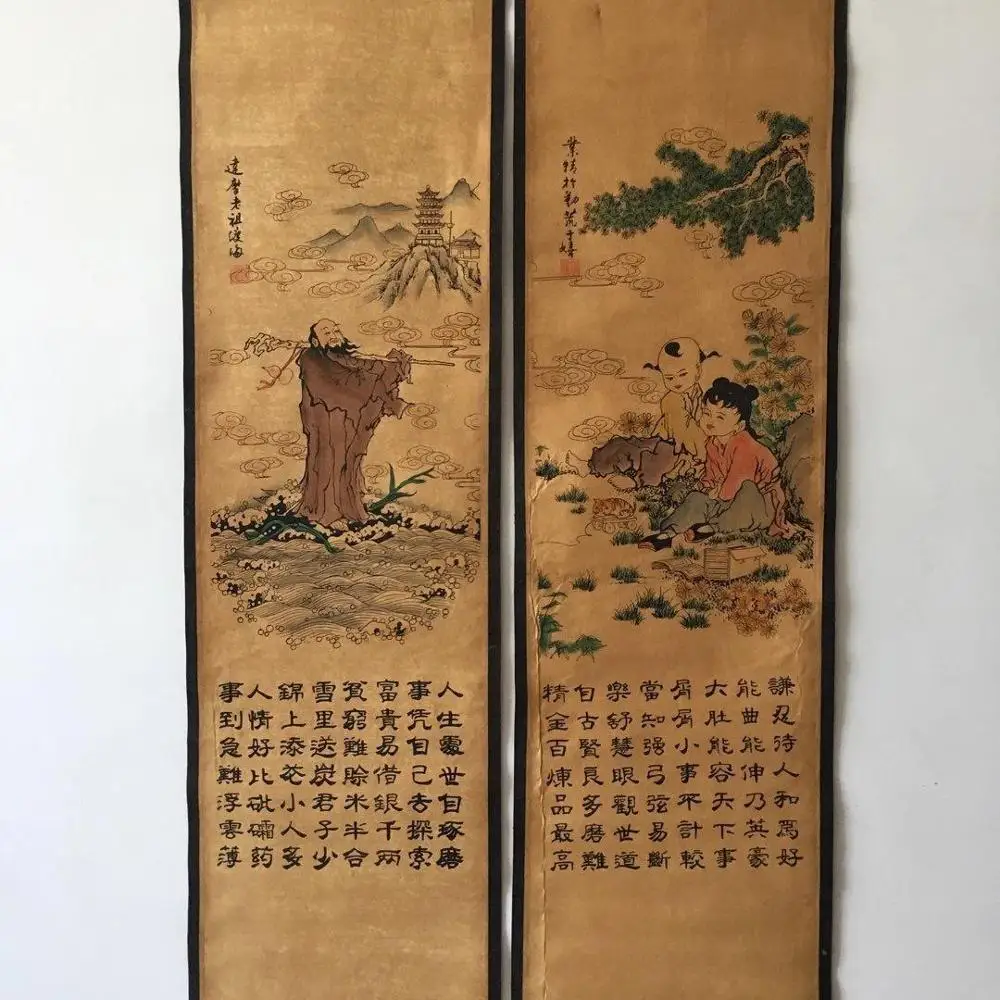 達摩老祖渡海
人生處世自琢磨
事凭自己去探索
富貴易借銀千两
貧窮難賒米半合
雪里送炭君子少
錦上添花小人多
人情好比砒礵药
事到急難浮雲薄
業精於勤荒于嬉
謙忍待人和爲好
能曲能伸乃英豪
大肚能容天下事
屑屑小事不計較
當知强弓弦易斷
樂舒慧眼觀世道
自古賢良多磨難
精金百煉品最高